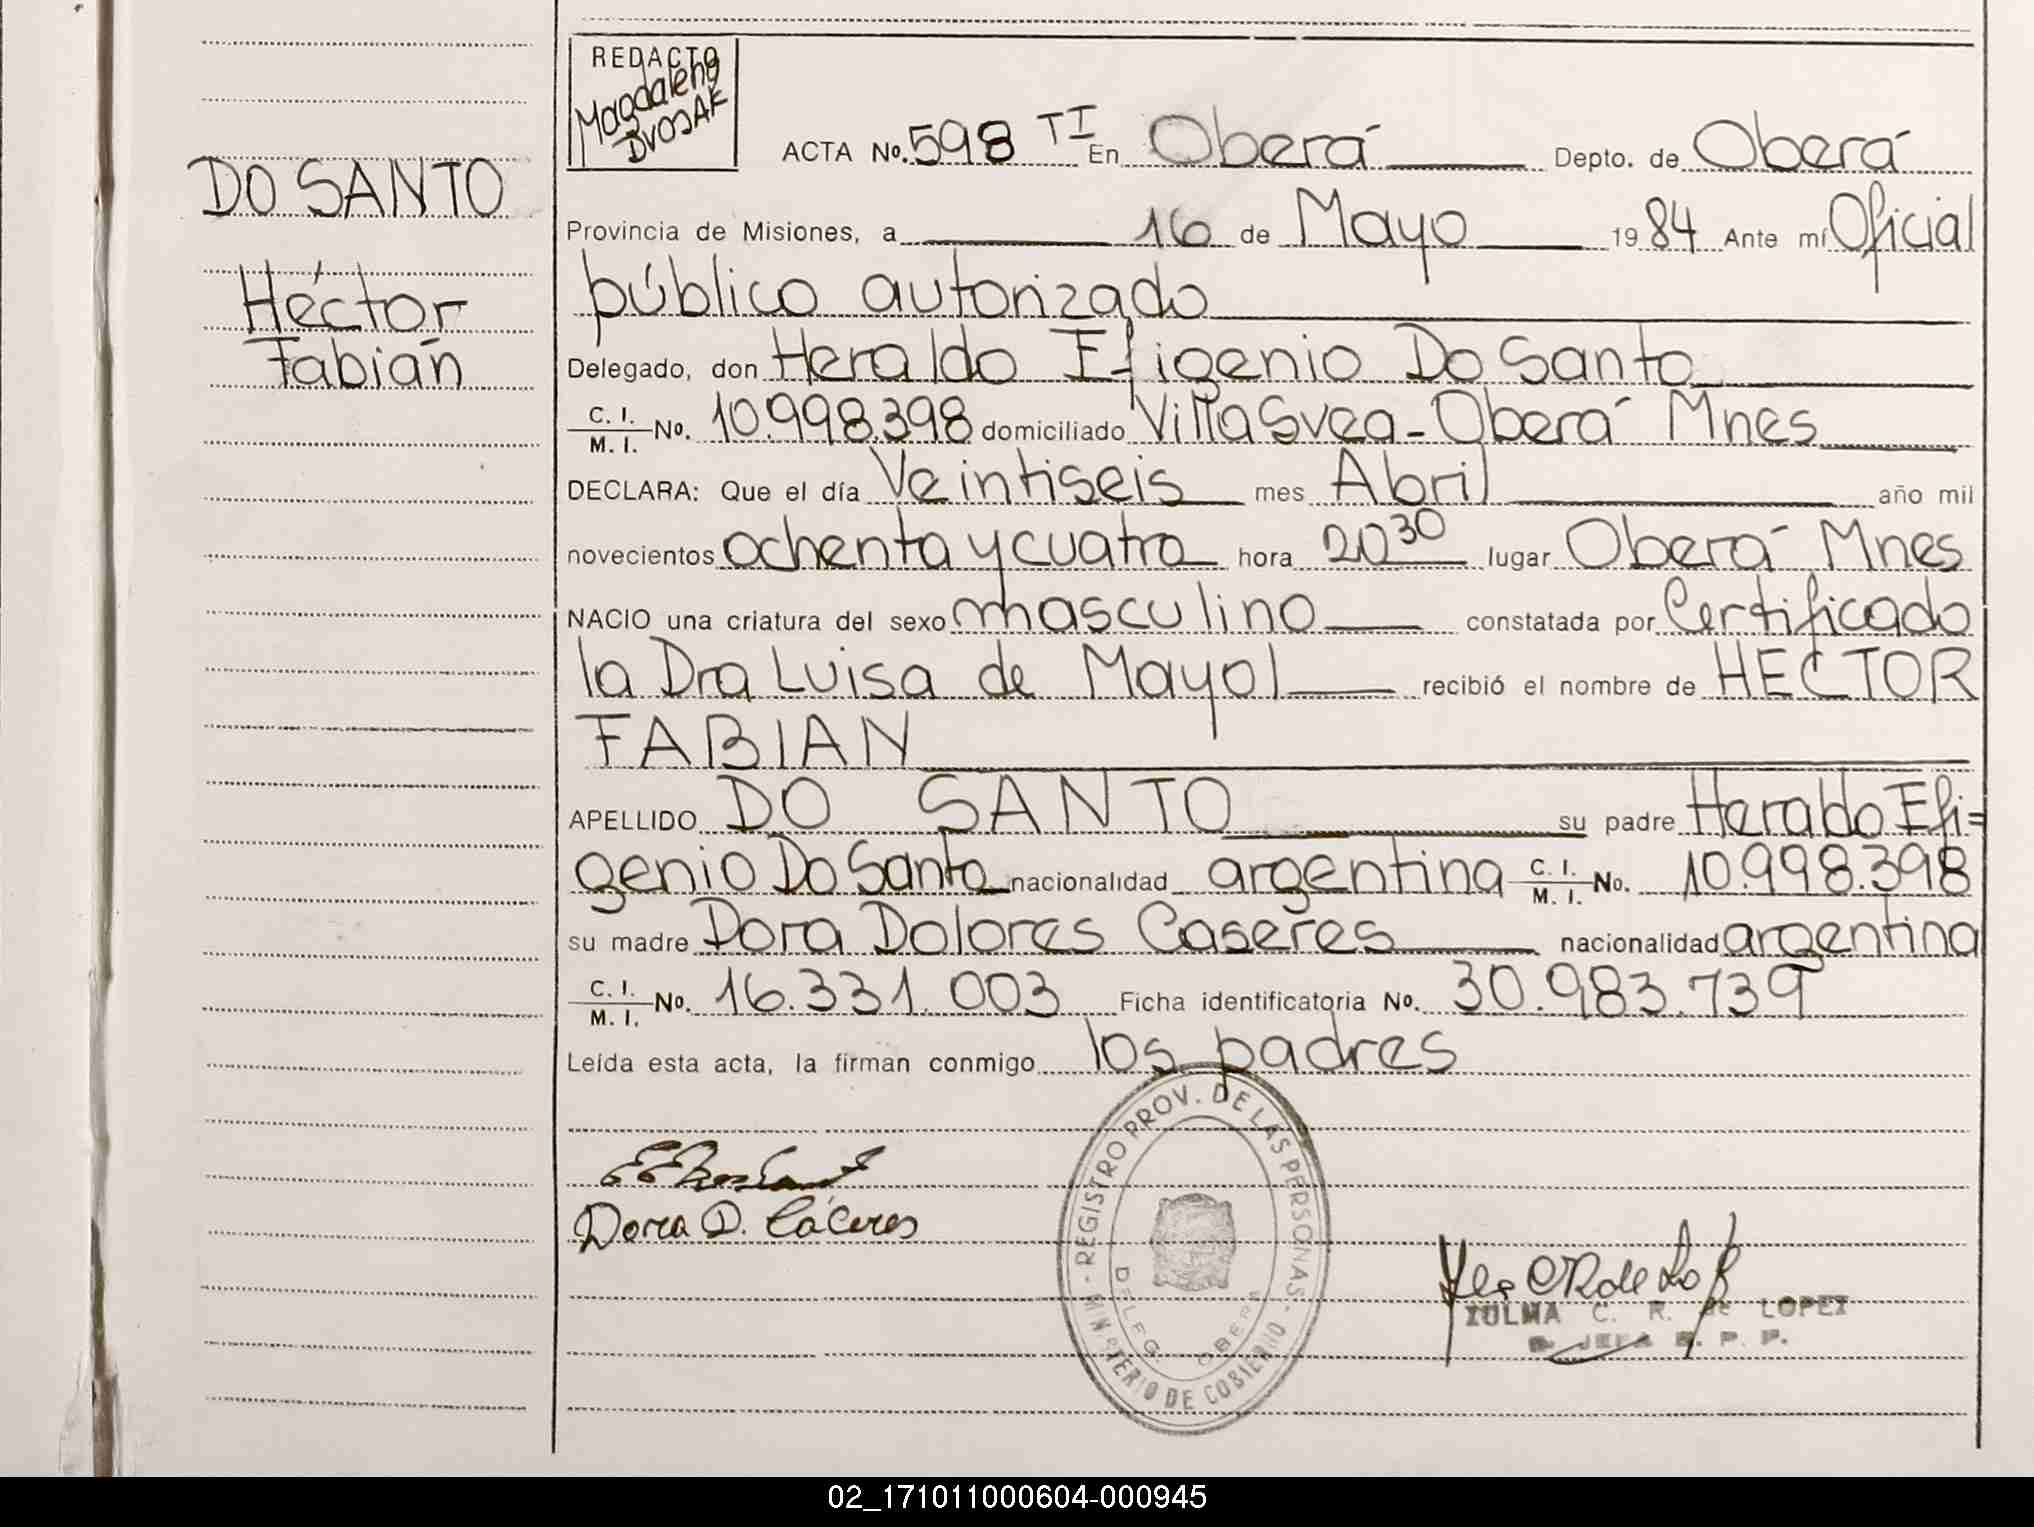 REDACTO
Magdalena
ACTA No. 598 TI En Oberá Depto. de Oberá
DO SANTO
Provincia de Misiones, a 16 de Mayo 1984 Ante mí Oficial
Héctor
público autorizado
Fabián
Delegado, don Heraldo Efigenio Do Santo
C. I. / M. I. No. 10.998.398 domiciliado Villa Svea - Oberá Mnes
DECLARA: Que el día Veintiseis mes Abril año mil
novecientos ochenta y cuatro hora 20 30 lugar Oberá Mnes
NACIO una criatura del sexo masculino constatada por Certificado
la Dra Luisa de Mayol recibió el nombre de HECTOR
FABIAN
APELLIDO DO SANTO su padre Heraldo Efi=
genio Do Santo nacionalidad argentina C. I. / M. I. No. 10.998.398
su madre Dora Dolores Caseres nacionalidad argentina
C. I. / M. I. No. 16.331.003 Ficha identificatoria No. 30.983.739
Leída esta acta, la firman conmigo los padres
REGISTRO PROV. DE LAS PERSONAS - MINISTERIO DE GOBIERNO -
DELEG. OBERA
Dora D. Cáceres
ZULMA C. R. de LOPEZ
JEFA R. P. P.
02_171011000604-000945